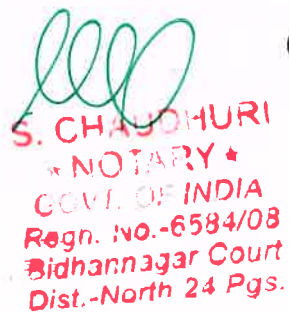 S. CHAUDHURI
★ NOTARY ★
GOVT. OF INDIA
Regn. No.-6584/08
Bidhannagar Court
Dist.-North 24 Pgs.